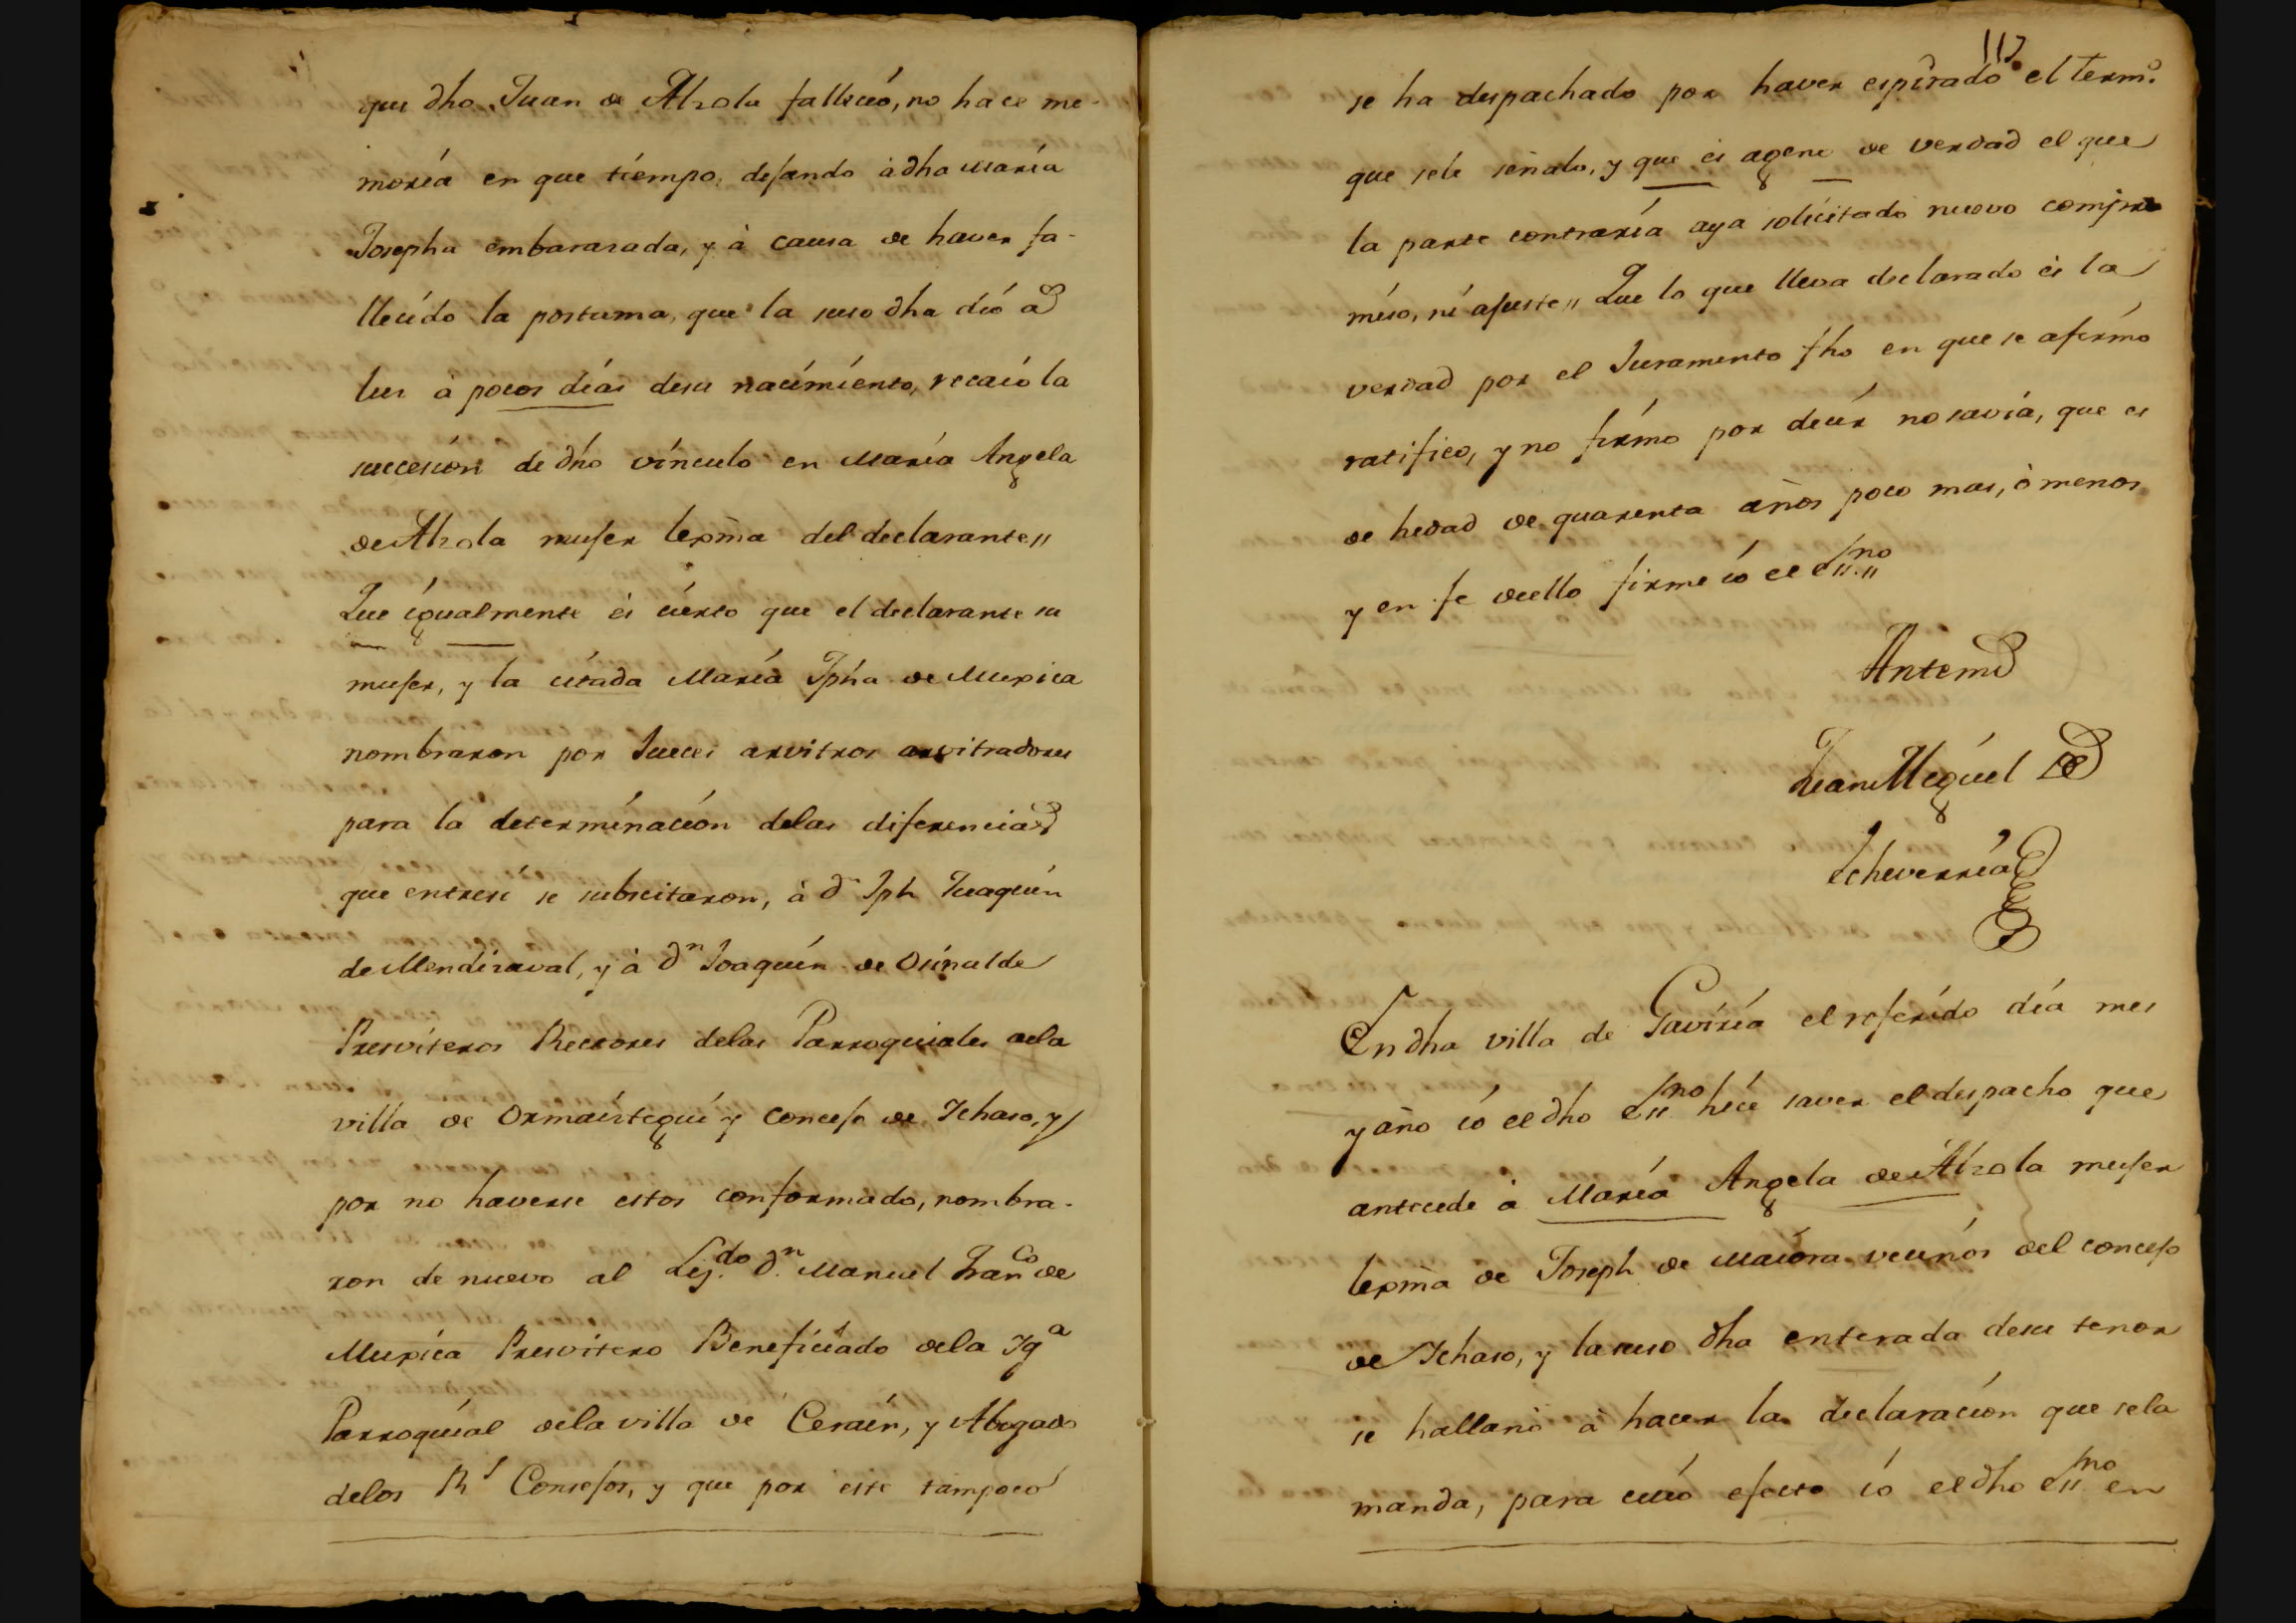 que dho Juan de Alzola falleció, no hace me-
moria en que tiempo, dejando à dha María
Josepha embarazada, y à causa de haver fa-
llecido la postuma, que la suso dha dió a
luz à pocos días desu nacimiento, recaió la
succesión de dho vínculo en María Angela
de Alzola mujer lexma del declarante,,
Que igualmente és cierto que el declarante su
mujer, y la citada María Jpha de Muxica
nombraron por Jueces arvitros arvitradores
para la determinación delas diferencias
que entresí se subscitaron, à dn Jph Juaquín
de Mendizaval, y à dn Joaquín de Osinalde
Presviteros Rectores delas Parroquiales dela
villa de Ormaiztegui y concejo de Ichaso, y
por no haverse estos conformado, nombra-
ron de nuevo al Lizdo dn Manuel Franco de
Muxica Presvitero Beneficiado dela Iga
Parroquial dela villa de Cerain, y Abogado
delos Rs Consejos, y que por este tampoco
113
se ha despachado por haver espirado el termo
que sele señalo, y que és ageno de verdad el que
la parte contraría aya solicitado nuevo compro
miso, ni ajuste,, Que lo que lleva declarado és la
verdad por el Juramento fho en que se afirmo
ratifico, y no firmo por decir no savía, que es
de hedad de quarenta años poco mas, ò menos
y en fe deello firme ió el Essno,,
Antemi
Juan Miguel de
Echeverría
En dha villa de Gaviria el referido día mes
y año ió el dho Essno hice saver el despacho que
antecede à María Angela de Alzola mujer
lexma de Joseph de Maiora vecinos del concejo
de Ichaso, y la suso dha enterada desu tenor
se hallanò à hacer la declaración que sela
manda, para cuió efecto ió el dho Essno en